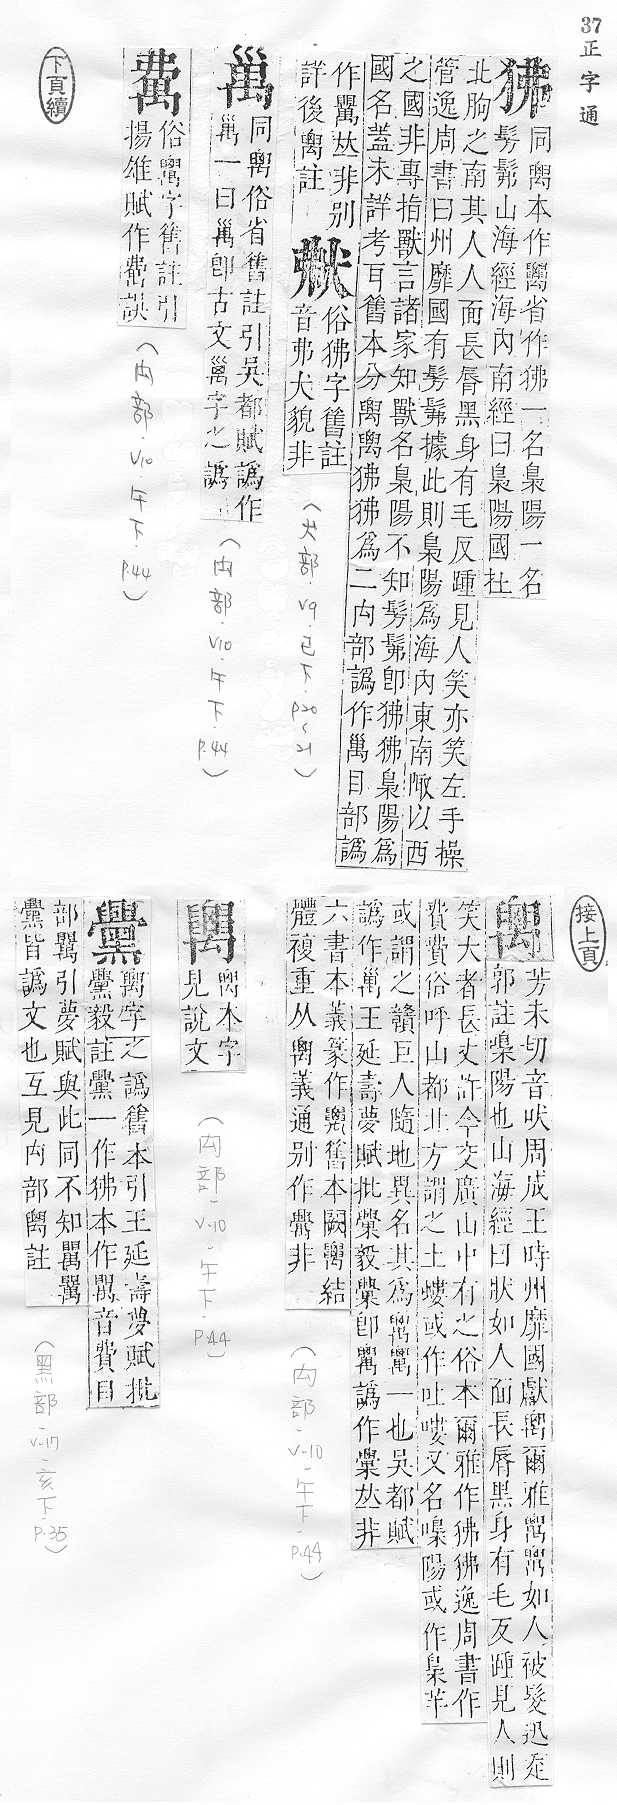 37 正字通
狒
同𥝋本作𥜿省作狒一名梟陽一名
髣髴山海經海內南經曰梟陽國在
北朐之南其人人面長脣黑身有毛反踵見人笑亦笑左手操
管逸周書曰州靡國有髣髴據此則梟陽為海內東南陬以西
之國非專指獸言諸家知獸名梟陽不知髣髴即狒狒梟陽為
國名蓋未詳考耳舊本分狒狒為二禸部譌作目部譌
作𠀤非別
詳後註
俗狒字舊註
音弗犬貌非
(犬部.V9.巳下.P.20~21)
同俗省舊註引吳都賦譌作
一曰即古文萬字之譌
(禸部.V10.午下.P.44)
俗字舊註引
揚雄賦作誤
(禸部.V10.午下.P.44)
下頁續
接上頁
芳未切音吠周成王時州靡國獻爾雅如人被髮迅走
郭註梟陽也山海經曰狀如人面長脣黑身有毛反踵見人則
笑大者長丈許今交廣山中有之俗本爾雅作狒狒逸周書作
費費俗呼山都北方謂之土螻或作吐嘍又名嘄陽或作梟羊
或謂之贛巨人隨地異名其為一也吳都賦
譌作王延壽夢賦批毅即譌作𠀤非
六書本義篆作舊本闕結
體複重从義通別作非
(禸部-V-10-午下-P.44)
本字
見說文
(禸部-V-10-午下-P.44)
字之譌舊本引王延壽夢賦批
毅註一作狒本作音費目
部引夢賦與此同不知
皆譌文也互見禸部註
(黑部-V-17-亥下-P.35)